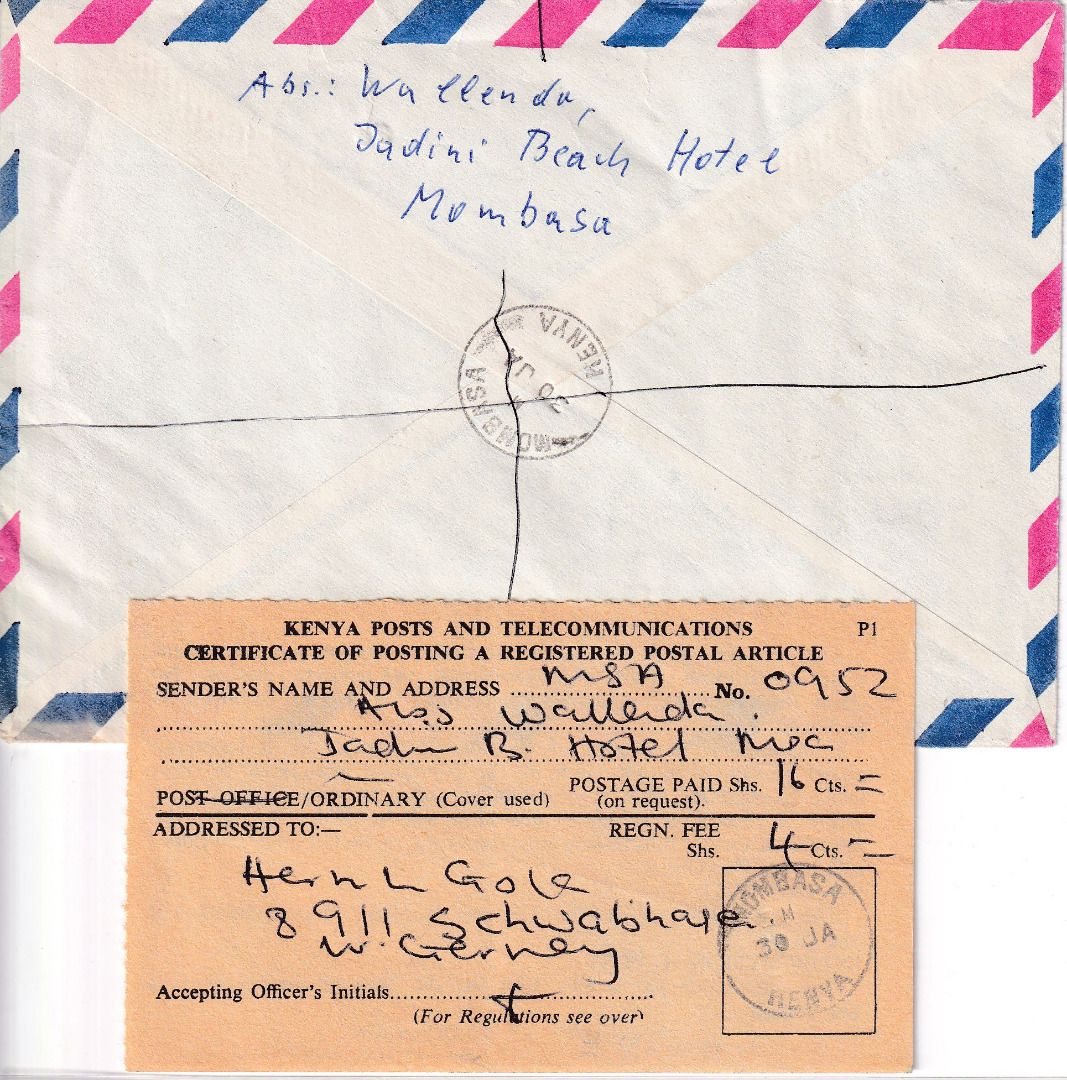 Abs.: Wallenda,
Jadini Beach Hotel
Mombasa
MOMBASA KENYA
30 JA
KENYA POSTS AND TELECOMMUNICATIONS P1
CERTIFICATE OF POSTING A REGISTERED POSTAL ARTICLE
SENDER'S NAME AND ADDRESS MSA No. 0952
Abs Wallenda.
B. Hotel
POSTAGE PAID Shs. 16 Cts. =
POST OFFICE/ORDINARY (Cover used) (on request).
ADDRESSED TO:—
REGN. FEE
Shs. 4 Cts. =
8911
W.
MOMBASA
30 JA
KENYA
Accepting Officer's Initials
(For Regulations see over)